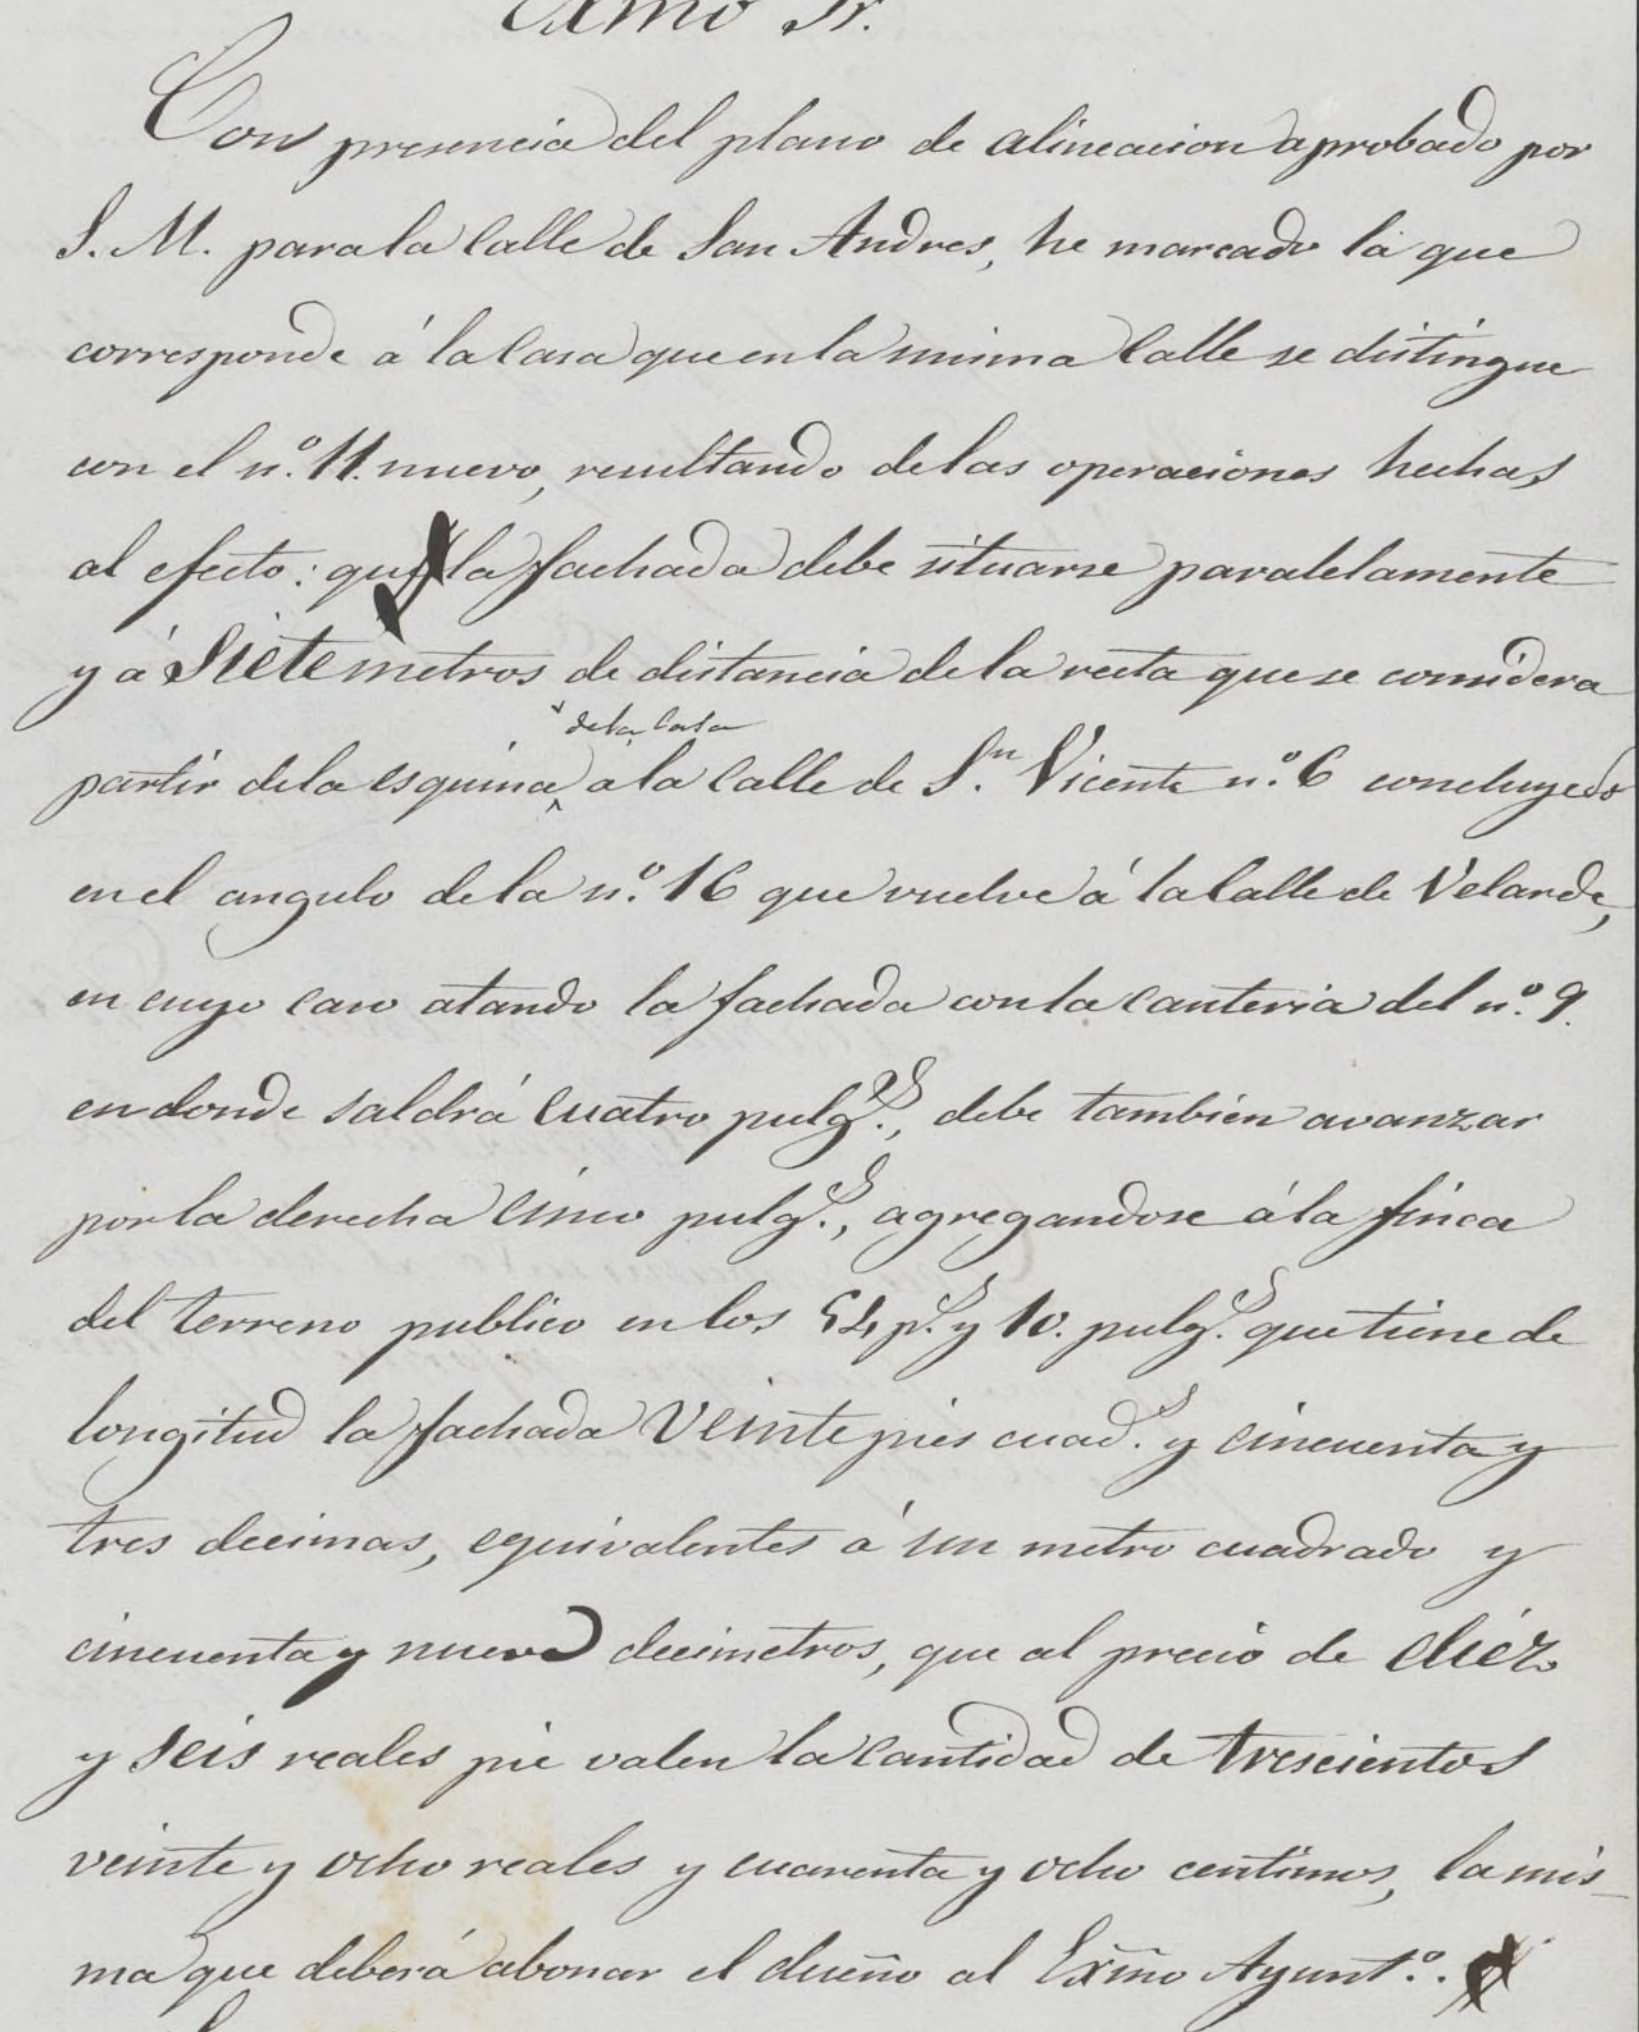 Exmo Sr.
Con presencia del plano de alineacion aprobado por
S. M. para la Calle de San Andres, he marcado la que
corresponde á la Casa que en la misma Calle se distingue
con el n.º 11. nuevo, resultando de las operaciones hechas
al efecto: que la fachada debe situarse paralelamente
y á Siete metros de distancia de la recta que se considera
de la Casa
partir de la esquina a la Calle de S.n Vicente n.º 6 concluyedo
en el angulo de la n.º 16 que vuelve á la Calle de Velarde,
en cuyo caso atando la fachada con la Canteria del n.º 9.
en donde saldrá Cuatro pulg.s, debe tambien avanzar
por la derecha Cinco pulg.s, agregandose á la finca
del terreno publico en los 54 p.s y 10. pulg.s que tiene de
longitud la fachada Veinte pies cuad.s y cincuenta y
tres decimas, equivalentes á un metro cuadrado y
cincuenta y nueve decimetros, que al precio de diez
y seis reales pie valen la Cantidad de trescientos
veinte y ocho reales y cuarenta y ocho centimos, la mis-
ma que deberá abonar el dueño al Exmo Ayunt.º.